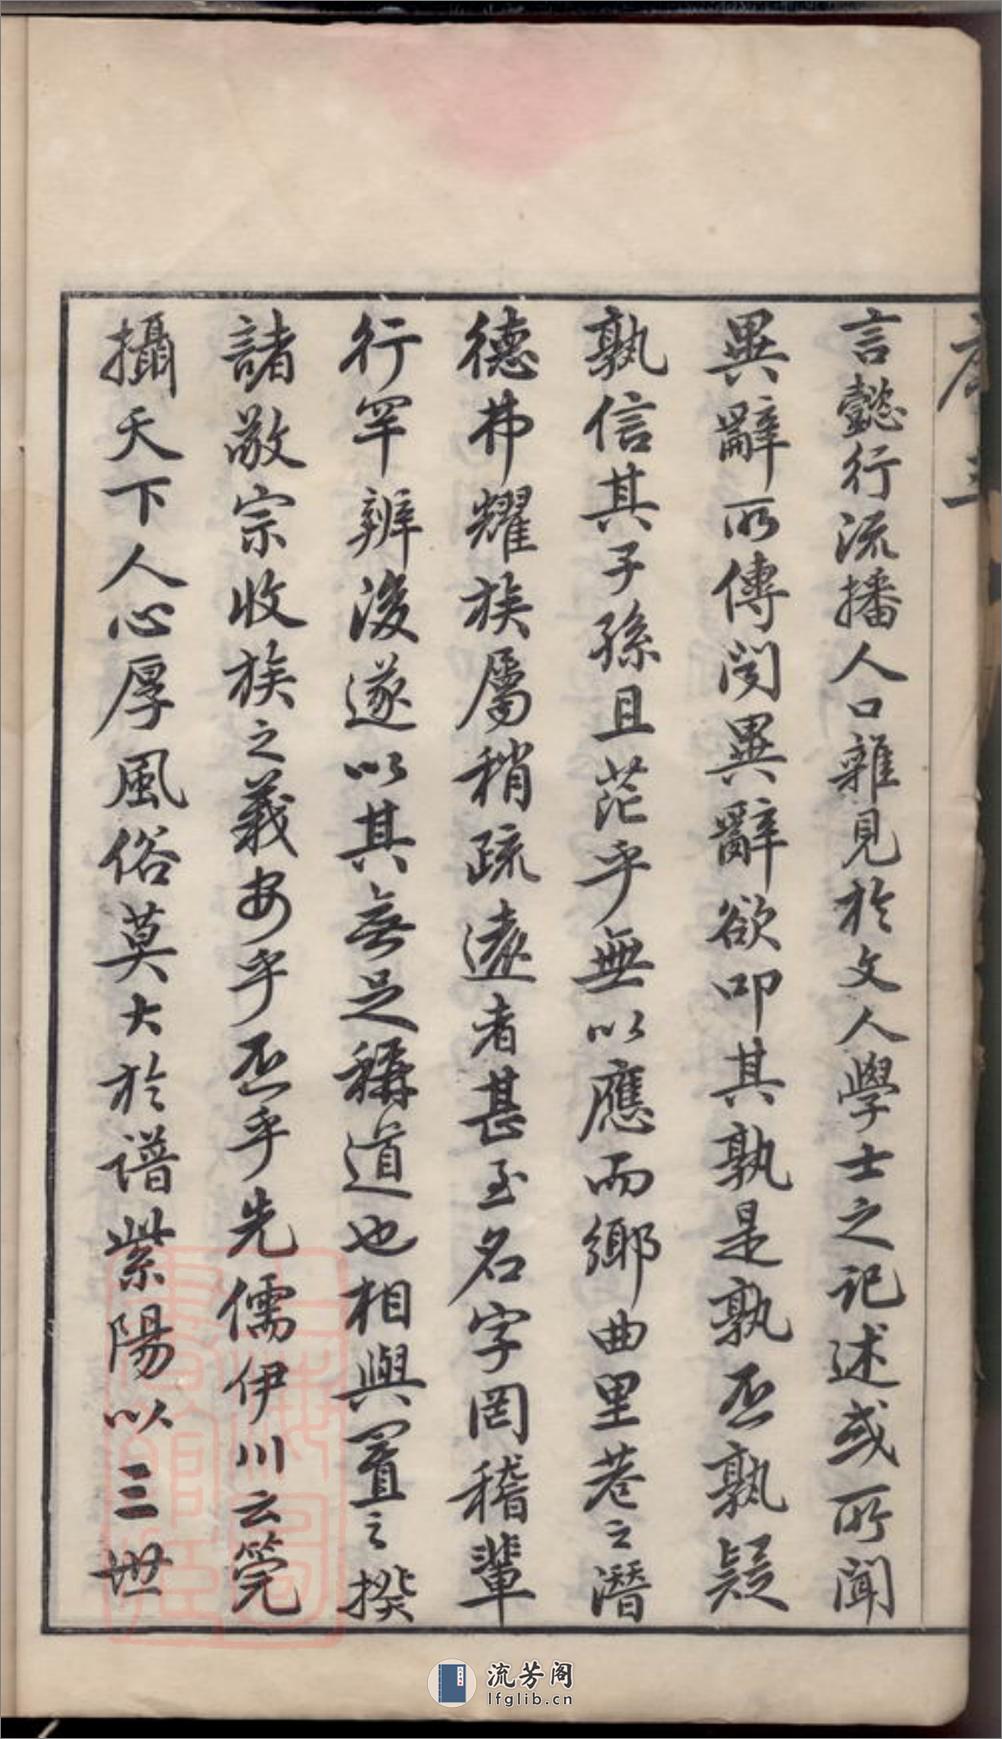 言懿行流播人口雜見於文人學士之記述或所聞
異辭所傳聞異辭欲叩其孰是孰否孰疑
孰信其子孫且茫乎無以應而鄉曲里巷之潛
德弗耀族屬稍疏遠者甚至名字罔稽輩
行罕辨後遂以其無足稱道也相與置之揆
諸敬宗收族之義安乎否乎先儒伊川云筦
攝天下人心厚風俗莫大於譜紫陽以三世
流芳阁
lfglib.cn